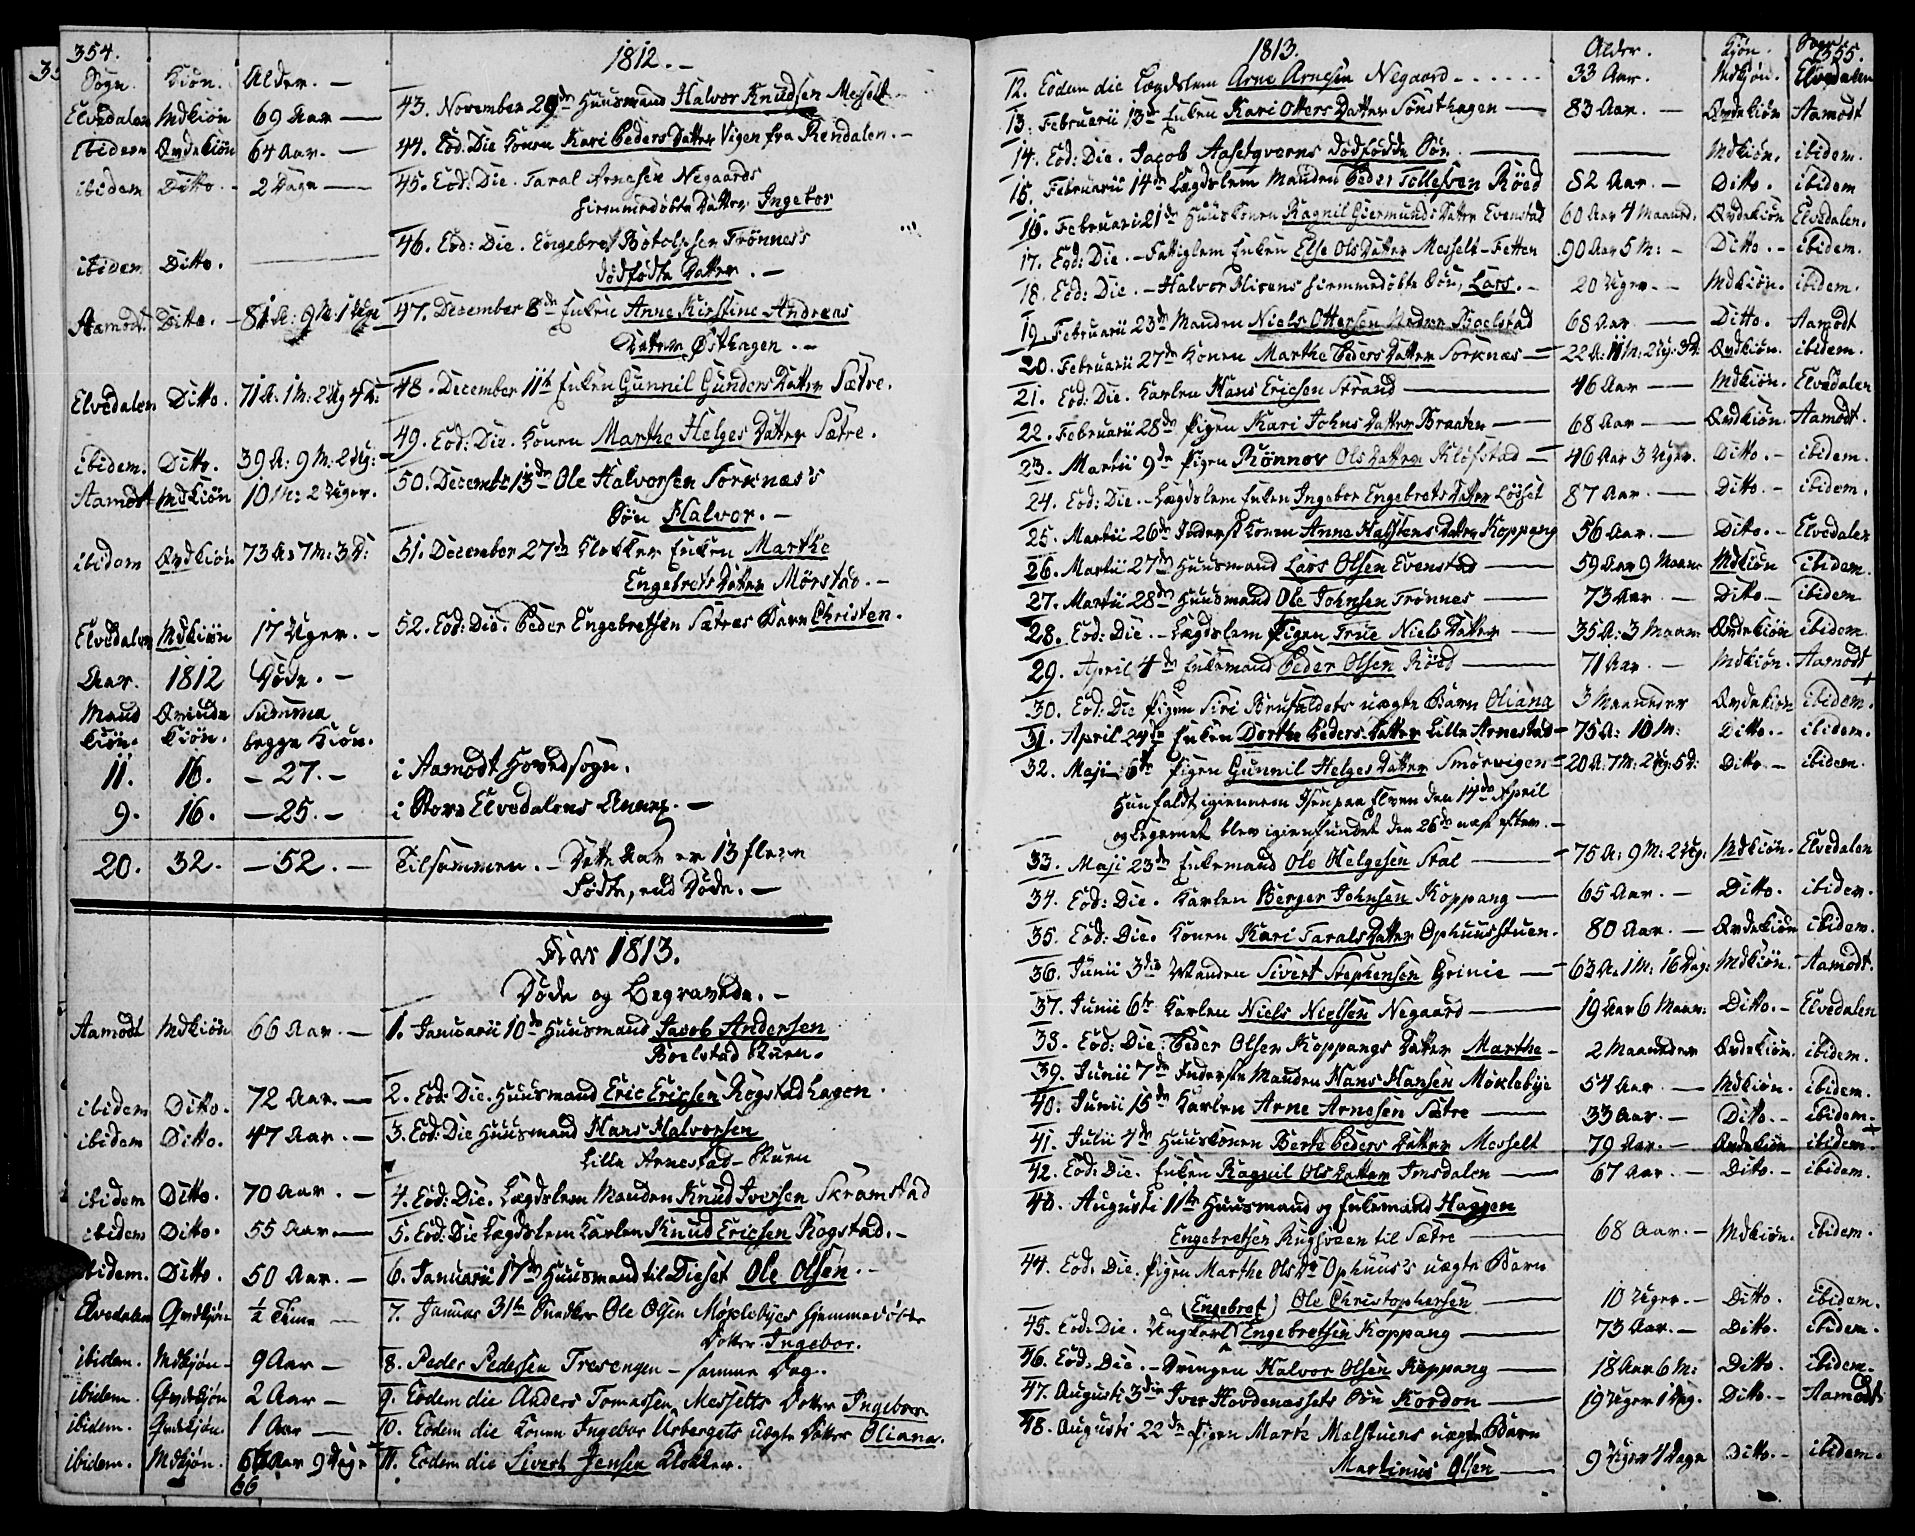 354.
1812. -
Sogn. Kiön. Alder. -
Elvedalen Mdkiön 69 Aar — 43. November 29de Huusmand Halvor Knudsen Messelt -
ibidem Qvdekiön 64 Aar. — 44. Eod: Die Konen Kari Peders Datter Vigen fra Rendalen. -
ibidem Ditto. - 2 Dage — 45. Eod: Die. Taral Arnesen Negaards
hiemmedöbte Datter Ingebor
ibidem Ditto. — 46. Eod: Die. Engebret Botolphsen Trönnes's
dödfödte Datter. -
Aamodt. Ditto. - 81 A: 9 M: 1 Uge 47. December 8de Enken Anne Kirstine Andreas
Datter Östhagen. -
Elvedalen Ditto. 71 A: 1 M: 2 Ug 4 D: 48. December 11te Enken Gunnil Gunders Datter Sætre.
ibidem. Ditto. 39 A: 9 M: 2 Ug: 49. Eod: Die. Konen Marthe Helges Datter Sætre.
Aamodt Mdkiön 10 M: 2 Uger. 50. Decembr 13de Ole Halvorsen Sorknæs's
Sön Halvor. -
ibidem Qvdekiön 73 A: 7 M: 3 D: 51. December 27de Klokker Enken Marthe
Engebrets Datter Mörstad. -
Elvedalen Mdkiön 17 Uger. - 52. Eod: Die. Peder Engebretsen Sætres Barn Christen.
Aar. 1812 Döde. -
Mand Qvinde Summa
kiön. kiön. begge Kiön.
11. 16. - 27. - i Aamodt Hovedsogn.
9. 16. - 25. - i Store Elvedalens Annex. -
20. 32. - 52. - Tilsammen. - Dette Aar er 13 flere
Födte, end Döde. -
Aar 1813.
Döde og Begravede. -
Aamodt Mdkiön 66 Aar. - 1. Januarii 10de Huusmand Jacob Andersen
Boelstad Stuen.
ibidem Ditto. 72 Aar. - 2. Eod: Die. Huusmand Eric Ericsen Rogstad hagen.
ibidem Ditto. 47 Aar. - 3. Eod: Die Huusmand Hans Halvorsen
Lille Arnestad - Stuen
ibidem Ditto. 70 Aar. - 4. Eod: Die. Lægdslem Manden Knud Iversen Skramstad
ibidem Ditto. 55 Aar. — 5. Eod: Die Lægdslem Karlen Knud Ericsen Rogstad. -
ibidem. Ditto. 50 Aar. - 6. Januarii 17de Huusmand til Dieset Ole Olsen. -
Elvedalen Qvdkjön ½ Time — 7. Januar 31te Snedker Ole Olsen Möklebyes hjemmedöbte
Dotter Ingebor.
ibidem. Mdkjön - 9 Aar - 8. Peder Pedersen Tresengen - samme Dag.
ibidem. Qvdkjön 2 Aar - 9. Eodem die Anders Tomassen Messelts Dotter Ingebor
ibidem. Qvdkjön. 1 Aar — 10. Eodem die Konen Ingebor Urbergets uægte Dotter Oliana.
ibidem. Mdkjön. 66 Aar 9 Dage 11. Eodem die Sivert Jensen Klokker.
66
1813.
Alder. Kjön. Sogn. 355.
12. Eodem die Lægdslem Arne Arnesen Negaard - - - - - 33 Aar. Mdkjön. Elvedalen
13. Februarii 13de Enken Kari Otters Datter Sönsthagen — 83 Aar. - Qvdekiön Aamodt
14. Eod: Die. Jacob Aasetqverns dödfödde Sön. — Mdkiön. ibidem.
15. Februarii 14de Lægdslem Manden Peder Tollefsen Röed 82 Aar. - Ditto. ibidem
16. Februari 21de Huuskonen Ragnil Giermunds Datter Evenstad 60 Aar 4 Maaned. Qvdekiön Elvedalen.
17. Eod: Die. - Fattiglem Enken Else Ols Datter Messelt-Fetten 90 Aar 5 M: - Ditto. - ibidem.
18. Eod: Die. - Halvor Flisens hiemmedöbte Sön, Lars. - 20 Uger. - Mdkiön. ibidem.
19. Februarii 23de Manden Niels Ottersen Nedre Boelstad 68 Aar — Ditto. Aamodt
20. Februarii 27de Konen Marthe Peders Datter Sorknæs - 22 A: 11 M: 2 Ug: 3 D: Qvdkiön. ibidem.
21. Eod: Die. Karlen Hans Ericsen Strand — 46 Aar — Mdkiön. Elvedalen
22. Februarii 28de Pigen Kari Johns Datter Braaten — 68 Aar — Qvdkiön. Aamodt.
23. Martii 9de Pigen Rönnov Ols Datter Klöfstad - 46 Aar 3 Uger. Ditto. - ibidem.
24. Eod: Die. - Lægdslem Enken Ingebor Engebrets Datter Lösset 87 Aar. - Ditto. - ibidem.
25. Martii 26de Inderst Konen Anne Halstens Datter Koppang 56 Aar. - Ditto. - Elvedalen
26. Martii 27de Huusmand Lars Olsen Evenstad — 59 Aar 9 Maaner Mdkiön ibidem.
27. Martii 28de Huusmand Ole Johnsen Trönnes — 73 Aar - Ditto - ibidem
28. Eod: Die. - Lægdslem Pigen True Niels Datter — 35 A: 3 Maan: Qvdekiön ibidem.
29. April 4de Enkemand Peder Olsen Röed — 71 Aar. - Mdkiön. Aamodt
30. Eod: Die Pigen Siri Brufaldets uægte Barn Oliana 3 Maaneder Qvdekiön ibidem.
31. April 24de Enken Dorthe Peders Datter Lille Arnestad - 75 A: 10 M: Ditto. - ibidem.
32. Maji 6te Pigen Gunnil Helges Datter Smörvigen - 20 A: 7 M: 2 Ug: 5 D: Ditto - ibidem.
Hun faldt igiennem Isen paa Elven den 14de April
og Legemet blev igienfundet den 26de næst efter. -
33. Maji 23de Enkemand Ole Helgesen Stal — 75 A: 9 M: 2 Ug: Mdkiön. Elvedalen
34. Eod: Die. Karlen Berger Johnsen Koppang — 65 Aar. - Ditto. ibidem.
35. Eod: Die. Konen Kari Tarals Datter Ophuusstuen. 80 Aar. - Qvdekiön ibidem.
36. Junii 3die Manden Sivert Stephensen Grinie — 63 A: 1 M: 16 Dag: Mdkiön. Aamodt.
37. Junii 6te Karlen Niels Nielsen Negaard — 19 Aar 6 Maan: Ditto. - Elvedalen
38. Eod: Die: Peder Olsen Koppangs Datter Marthe - 2 Maaneder Qvdekiön. ibidem.
39. Junii 7de Inderste Manden Hans Hansen Möklebye 54 Aar. — Mdkiön. ibidem.
40. Junii 15de Karlen Arne Arnesen Sætre — 33 Aar. - Ditto. - ibidem.
41. Julii 4de Huuskonen Berte Peders Datter Messelt 79 Aar. - Qvdekiön ibidem.
42. Eod: Die. Enken Ragnil Ols Datter Imsdalen — 67 Aar. - Ditto. - ibidem.
43. Augusti 11te Huusmand og Enkemand Haagen
Engebretsen Rugsveen til Sætre — 68 Aar. - Mdkiön. ibidem.
44. Eod: Die. Pigen Marthe Ols Dr Ophuus's uægte Barn
Ole Christophersen — 10 Uger. - Ditto. ibidem.
(Engebret)
45. Eod: Die. Ungkarl Engebretsen Koppang — 73 Aar. - Ditto. ibidem.
46. Eod: Die. - Drengen Halvor Olsen Koppang — 18 Aar 6 M: Ditto. ibidem.
47. Augusti 3die Iver Hovdenæssets Sön Kordon — 19 Uger 1 Dag. Ditto. - Aamodt
48. Augusti 22de Pigen Marte Malstuens uægte Barn
Martinus Olsen — 9 Uger 4 Dage Ditto. - ibidem.